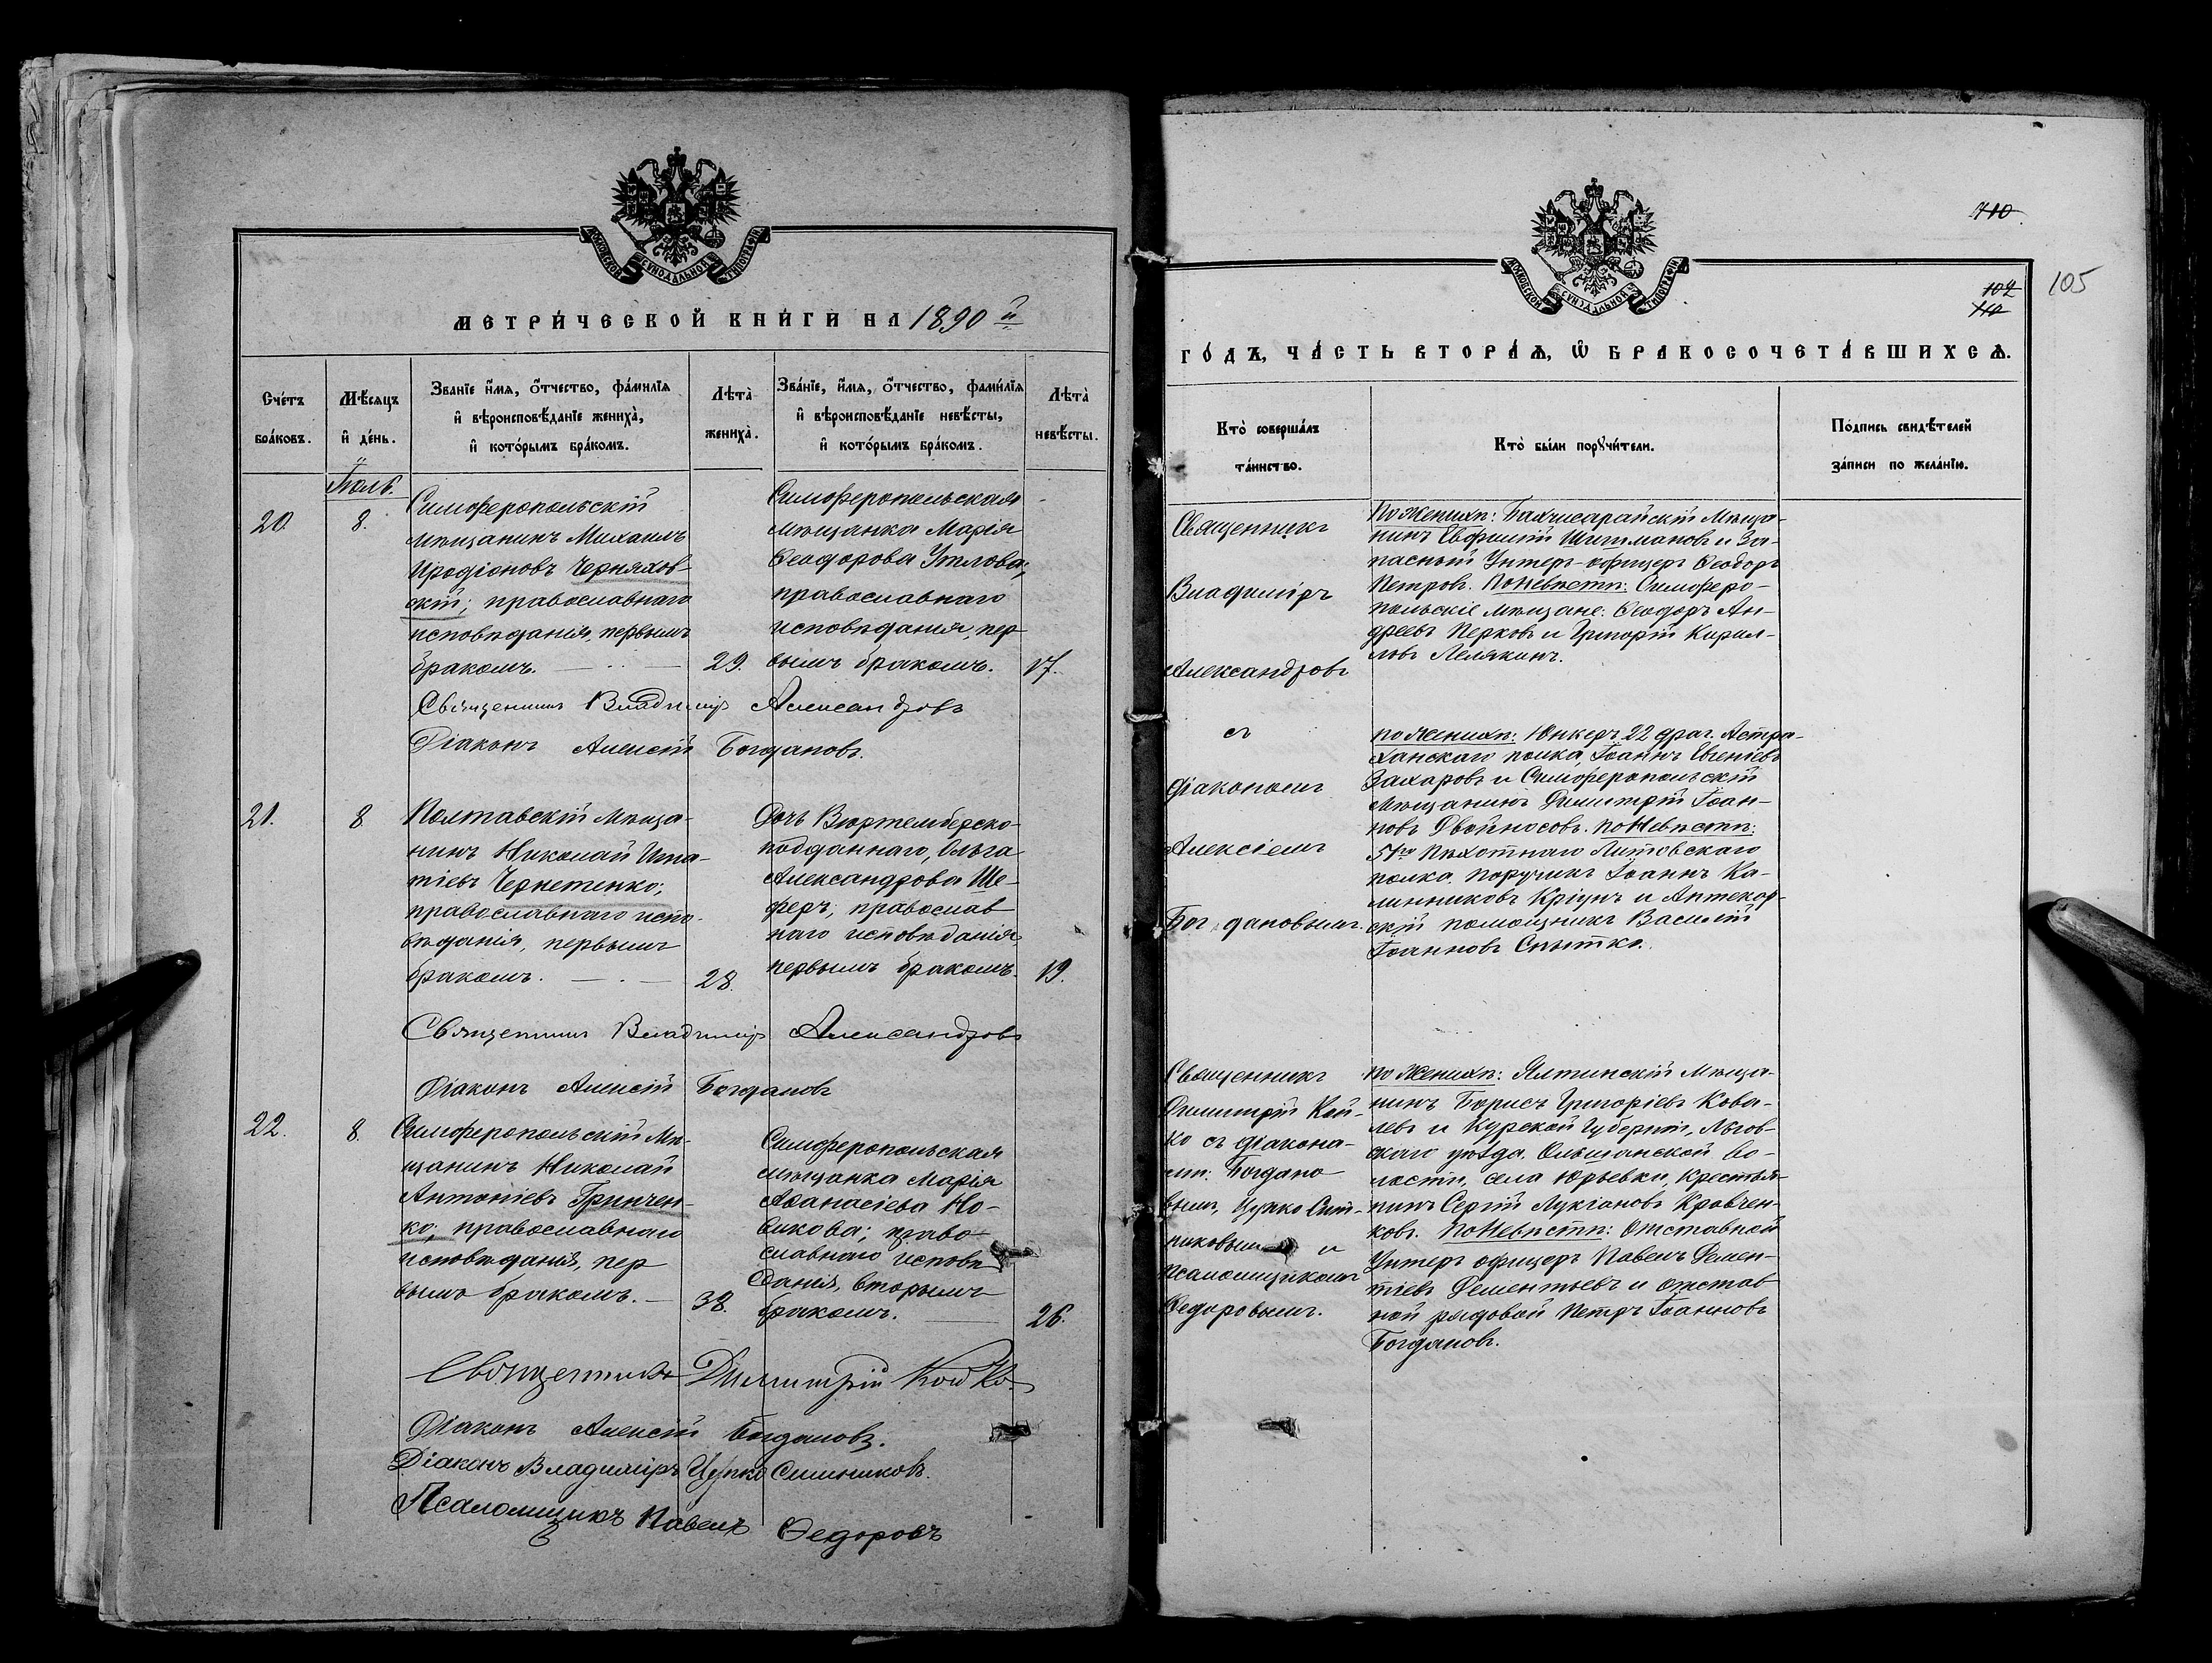 МОСКОВСКОЙ СѴНОДАЛЬНОЙ ТИПОГРАФІИ
МЕТРИ́ЧЕСКОЙ КНИ́ГИ НА 1890 й
Сче́тъ бра́ковъ.
Мѣ́сяцъ и де́нь.
Зва́нїе и҆́мя, ѻ҆́тчество, фамил́їя
и҆ вѣроисповѣ́данїе жениха̀,
и҆ кото́рымъ бра́комъ.
Лѣта̀ жениха̀.
Зва́нїе, и҆́мя, ѻ҆́тчество, фами́лїя
и҆ вѣроисповѣ́данїе невѣ́сты,
и҆ кото́рымъ бра́комъ.
Лѣта̀ невѣ́сты.
Іюль.
20.
8.
Симферопольскій
мѣщанинъ Михаилъ
Иродіоновъ Черняхов-
скій; православнаго
исповѣданія, первымъ
бракомъ.
29.
Симферопольская
мѣщанка Марія
Ѳеодорова Утлова;
православнаго
исповѣданія, пер
вымъ бракомъ.
17.
Священникъ Владиміръ Александровъ
Діаконъ Алексій Богдановъ.
21.
8
Полтавскій мѣща-
нинъ Николай Игна-
тіевъ Чернетенко;
православнаго испо-
вѣданія, первымъ
бракомъ.
28.
Дочь Виртемберско-
подданнаго, Ольга
Александрова Ше-
феръ; православ
наго исповѣданія,
первымъ бракомъ.
19.
Священникъ Владиміръ Александровъ
Діаконъ Алексій Богдановъ
22.
8.
Симферопольскій мѣ-
щанинъ Николай
Антоніевъ Гринчен-
ко; православнаго
исповѣданія, пер
вымъ бракомъ.
38.
Симферопольская
мѣщанка Марія
Аѳанасіева Но-
викова; право
славнаго исповѣ
данія, вторымъ
бракомъ.
26.
Священникъ Димитрій Койко
Діаконъ Алексій Богдановъ.
Діаконъ Владиміръ Цупко Ситниковъ.
Псаломщикъ Павелъ Ѳедоровъ
710
МОСКОВСКОЙ СѴНОДАЛЬНОЙ ТИПОГРАФІИ
105
ГО́ДЪ, ЧА́СТЬ ВТОРА́Я, Ѡ҆ БРАКОСОЧЕТА́ВШИХСЯ.
Кто̀ соверша́лъ
та́инство.
Кто̀ бы́ли порꙋчи́тели.
По́дпись свидѣ́телей
за́писи по жела́нїю.
Священникъ
Владиміръ
Александровъ
съ
діакономъ
Алексіемъ
Богдановымъ.
По женихѣ: Бахчисарайскій мѣща-
нинъ Евфимій Шишмановъ и за-
пасный Унтеръ-офицеръ Ѳеодоръ
Петровъ. По невѣстѣ: Симферо-
польскіе мѣщане: Ѳеодоръ Ан-
дреевъ Перковъ и Григорій Кирил-
ловъ Лелякинъ.
по женихѣ: Юнкеръ 22 драг. Астра-
ханскаго полка, Іоаннъ Евгеніевъ
Захаровъ и Симферопольскій
мѣщанинъ Димитрій Іоан-
новъ Двойносовъ. по невѣстѣ:
51го пѣхотнаго Литовскаго
полка поручикъ Іоаннъ Ка-
линниковъ Кріунъ и Аптекар-
скій помощникъ Василій
Іоанновъ Снытко.
Священникъ
Димитрій Кой-
ко съ діакона-
ми: Богдано
вымъ, Цупко Сит-
никовымъ и
псаломщикомъ
Ѳедоровымъ.
по женихѣ: Ялтинскій мѣща-
нинъ Борисъ Григоріевъ Кова-
левъ и Курской Губерніи, Льгов-
скаго уѣзда, Ольшанской во-
лости, села Юрьевки, крестья-
нинъ Сергій Лукіановъ Кравчен-
ковъ. По невѣстѣ: отставной
Унтеръ офицеръ Павелъ Демен-
тіевъ Дементьевъ и отстав
ной рядовой Петръ Іоанновъ
Богдановъ.